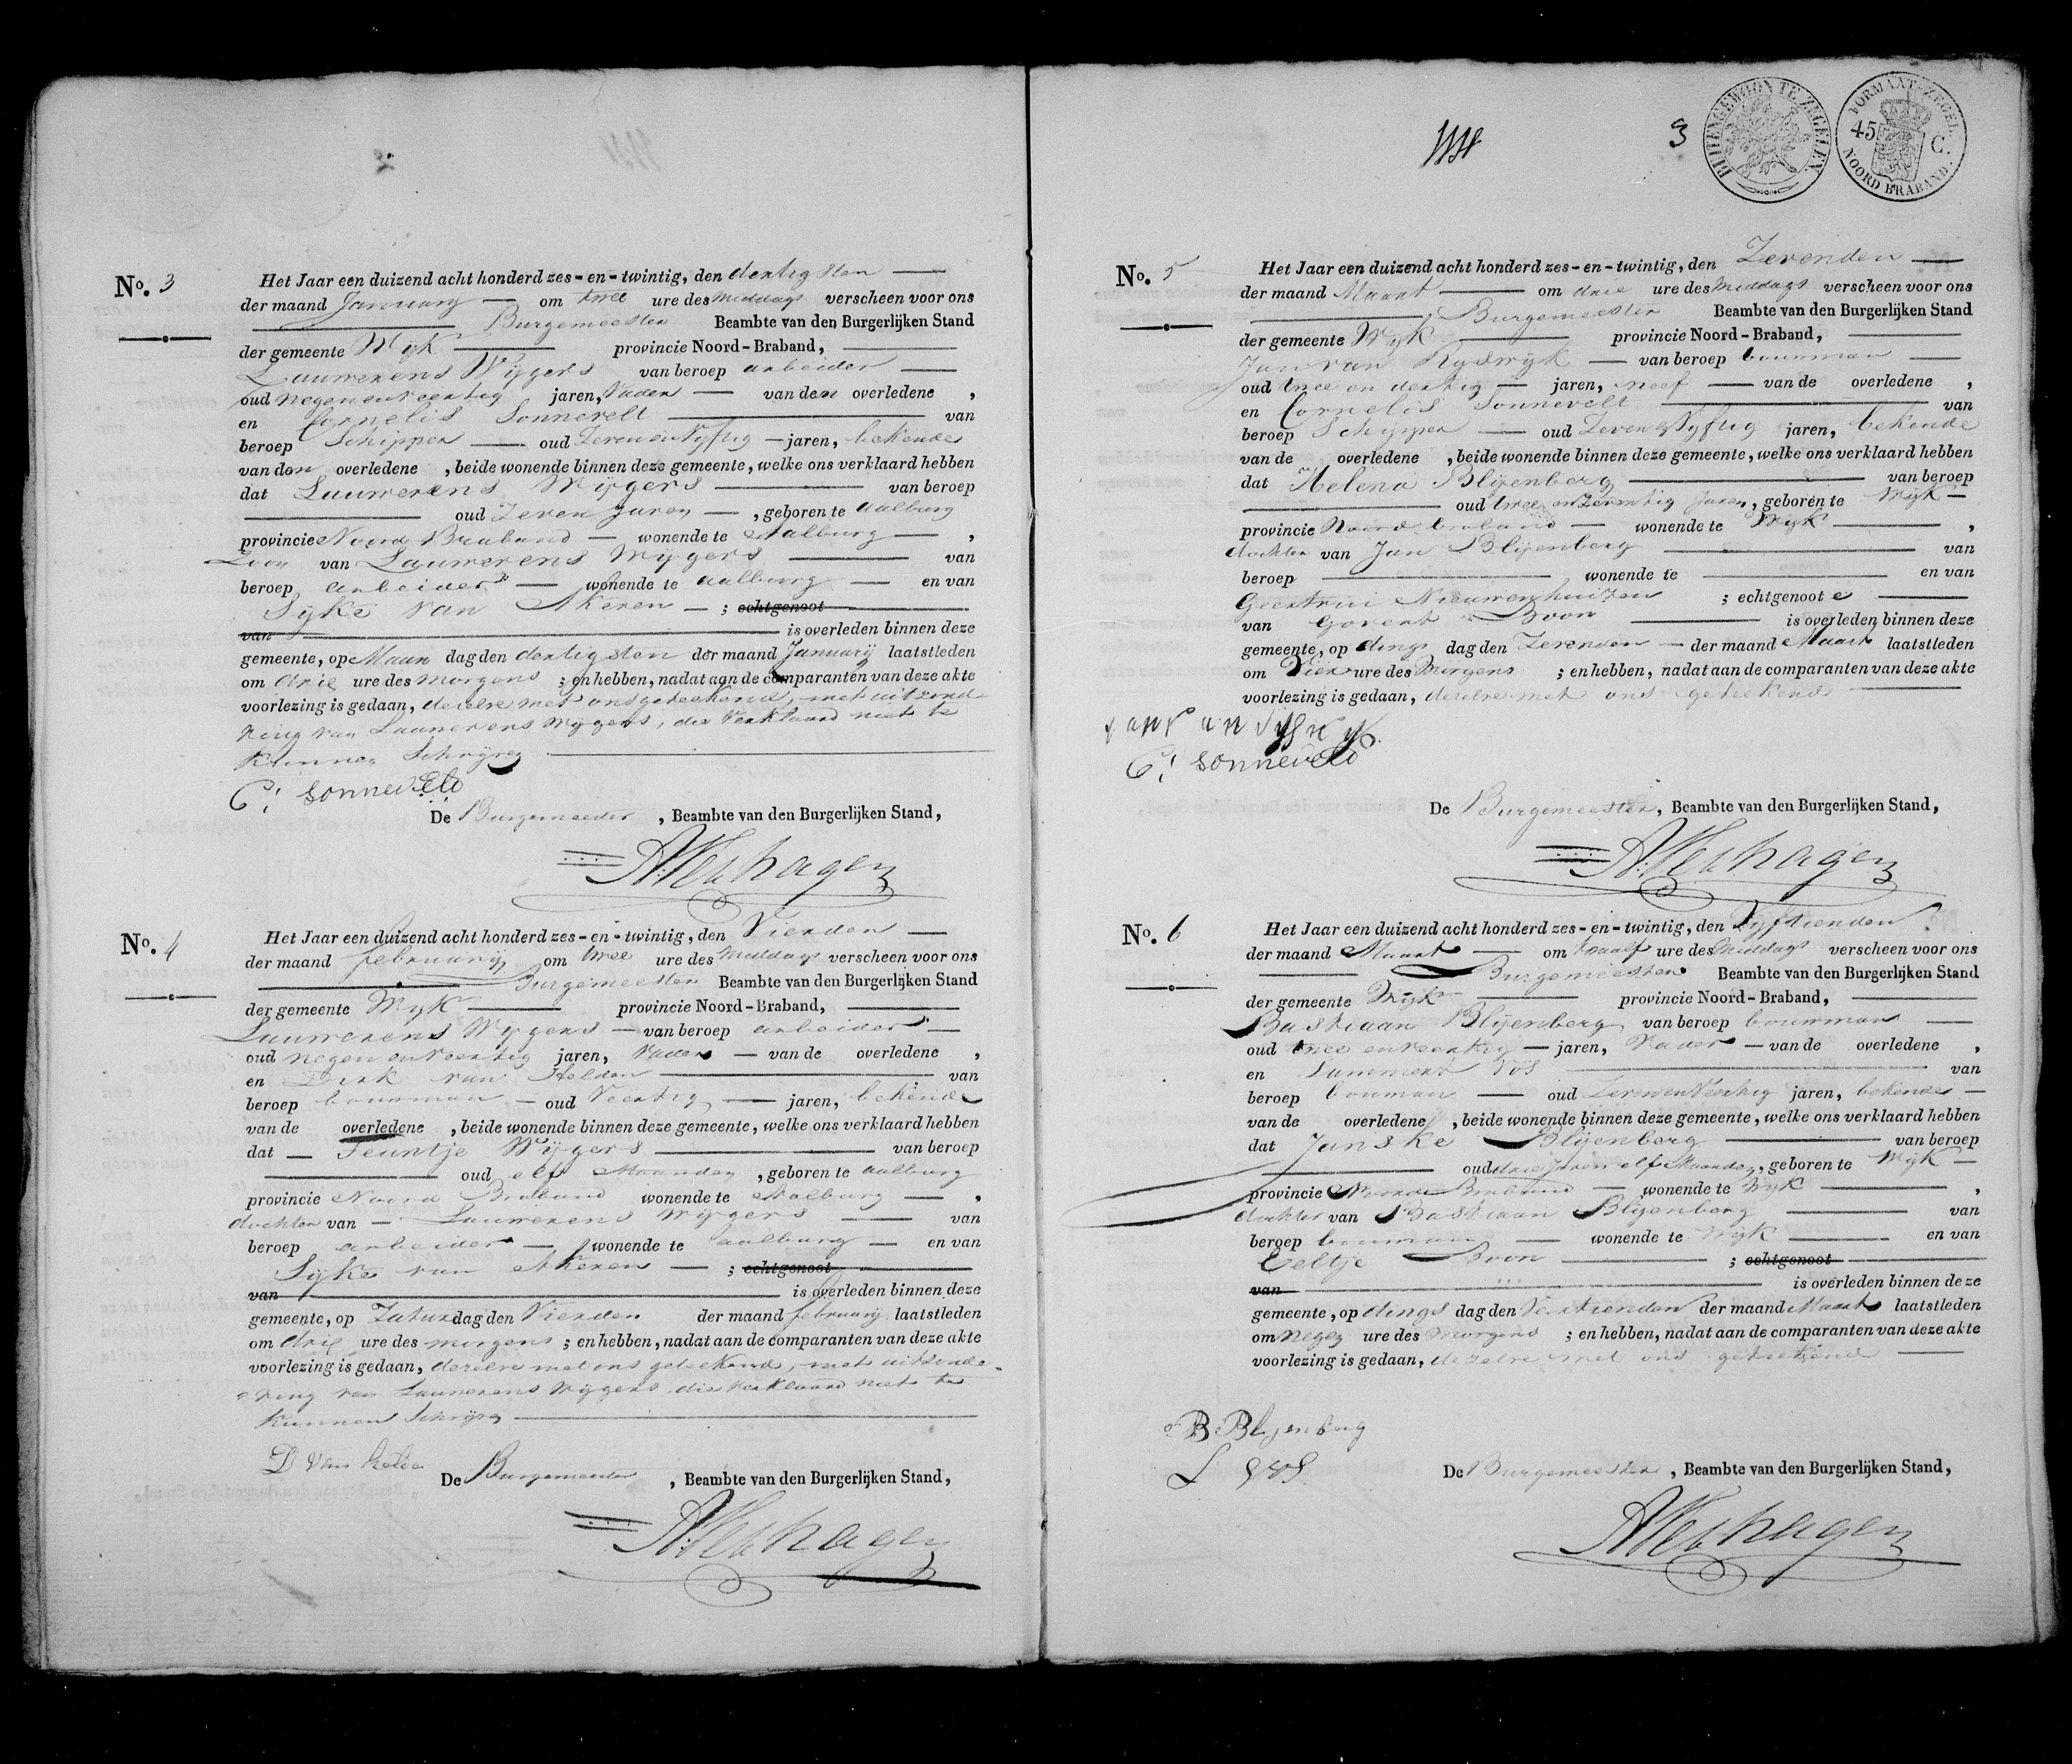 No. 3
Het Jaar een duizend acht honderd zes-en-twintig, den dertigsten
der maand January om twee ure des Middags verscheen voor ons
Burgemeester Beambte van den Burgerlijken Stand
der gemeente Wijk provincie Noord-Braband,
Lauwerens Wijgers van beroep arbeider
oud negenenveertig jaren, Vader van den overledene ,
en Cornelis Sonnevelt van
beroep Schipper oud Zevenenvyftig jaren, bekende
van den overledene , beide wonende binnen deze gemeente, welke ons verklaard hebben
dat Lauwerens Wijgers van beroep
oud Zeven Jaren , geboren te Aalburg
provincie Noord Braband wonende te Aalburg ,
Zoon van Lauwerens Wijgers van
beroep arbeider wonende te aalburg en van
Sijke van Nkeren ; echtgenoot
van is overleden binnen deze
gemeente, op Maan dag den dertigsten der maand Januarij laatstleden
om drie ure des morgens ; en hebben, nadat aan de comparanten van deze akte
voorlezing is gedaan, dezelve met ons geteekend, met uitzonde-
ring van Lauwerens Wijgers, die verklaard niet te
kunnen Schrijven
C: sonneveld
De Burgemeester , Beambte van den Burgerlijken Stand,
A:Verhagen
No. 4
Het Jaar een duizend acht honderd zes-en-twintig, den Vierden
der maand februarij om twee ure des Middags verscheen voor ons
Burgemeester Beambte van den Burgerlijken Stand
der gemeente Wijk provincie Noord-Braband,
Lauwerens Wijgers van beroep arbeider
oud negenenveertig jaren, Vader van de overledene ,
en Dirk van Helden van
beroep bouwman oud Veertig jaren, bekende
van de overledene , beide wonende binnen deze gemeente, welke ons verklaard hebben
dat Teuntje Wijgers van beroep
oud elf Maanden , geboren te aalburg
provincie Noord Braband wonende te Aalburg ,
dochter van Lauwerens Wijgers van
beroep arbeider wonende te aalburg en van
Sijke van Nkeren ; echtgenoot
van is overleden binnen deze
gemeente, op Zatur dag den Vierden der maand februarij laatstleden
om drie ure des morgens ; en hebben, nadat aan de comparanten van deze akte
voorlezing is gedaan, dezelve met ons geteekend, met uitzonde-
ring van Lauwerens Wijgers, die verklaard niet te
kunnen Schrijven
D van helde
De Burgemeester , Beambte van den Burgerlijken Stand,
A:Verhagen
3
BUITENGEWOON TE ZEGELEN.
FORMAAT-ZEGEL.
45 C.
NOORD BRABAND.
No. 5
Het Jaar een duizend acht honderd zes-en-twintig, den Zevenden
der maand Maart om drie ure des Middags verscheen voor ons
Burgemeester Beambte van den Burgerlijken Stand
der gemeente Wijk provincie Noord-Braband,
Jan van Rijswijk van beroep bouwman
oud twee en dertig jaren, neef van de overledene ,
en Cornelis Sonnevelt van
beroep Schipper oud Zevenenvyftig jaren, bekende
van de overledene , beide wonende binnen deze gemeente, welke ons verklaard hebben
dat Helena Blijenberg van beroep
oud twee en Zeventig Jaren, geboren te Wijk
provincie Noord braband wonende te Wijk ,
dochter van Jan Blijenberg van
beroep wonende te en van
Geertrui Nieuwenhuizen ; echtgenoot e
van Govert Boon is overleden binnen deze
gemeente, op dings dag den Zevenden der maand Maart laatstleden
om Vier ure des Morgens ; en hebben, nadat aan de comparanten van deze akte
voorlezing is gedaan, dezelve met ons geteekend
C: sonneveld
De Burgemeester, Beambte van den Burgerlijken Stand,
A:Verhagen
No. 6
Het Jaar een duizend acht honderd zes-en-twintig, den Vyftienden
der maand Maart om twaalf ure des Middags verscheen voor ons
Burgemeester Beambte van den Burgerlijken Stand
der gemeente Wijk provincie Noord-Braband,
Bastiaan Blijenberg van beroep bouwman
oud twee enveertig jaren, Vader van de overledene ,
en Lammert Vos van
beroep bouman oud Zevenenveertig jaren, bekende
van de overledene , beide wonende binnen deze gemeente, welke ons verklaard hebben
dat Janske Blijenberg van beroep
oud drie Jaren elf Maanden, geboren te Wijk
provincie Noord Braband wonende te Wijk ,
dochter van Bastiaan Blijenberg van
beroep bouman wonende te Wijk en van
Eeltje Boon ; echtgenoot
van is overleden binnen deze
gemeente, op dings dag den Veertienden der maand Maart laatstleden
om Negen ure des Morgens ; en hebben, nadat aan de comparanten van deze akte
voorlezing is gedaan, dezelve met ons geteekend
B Blyenberg
L vos
De Burgemeester , Beambte van den Burgerlijken Stand,
A:Verhagen